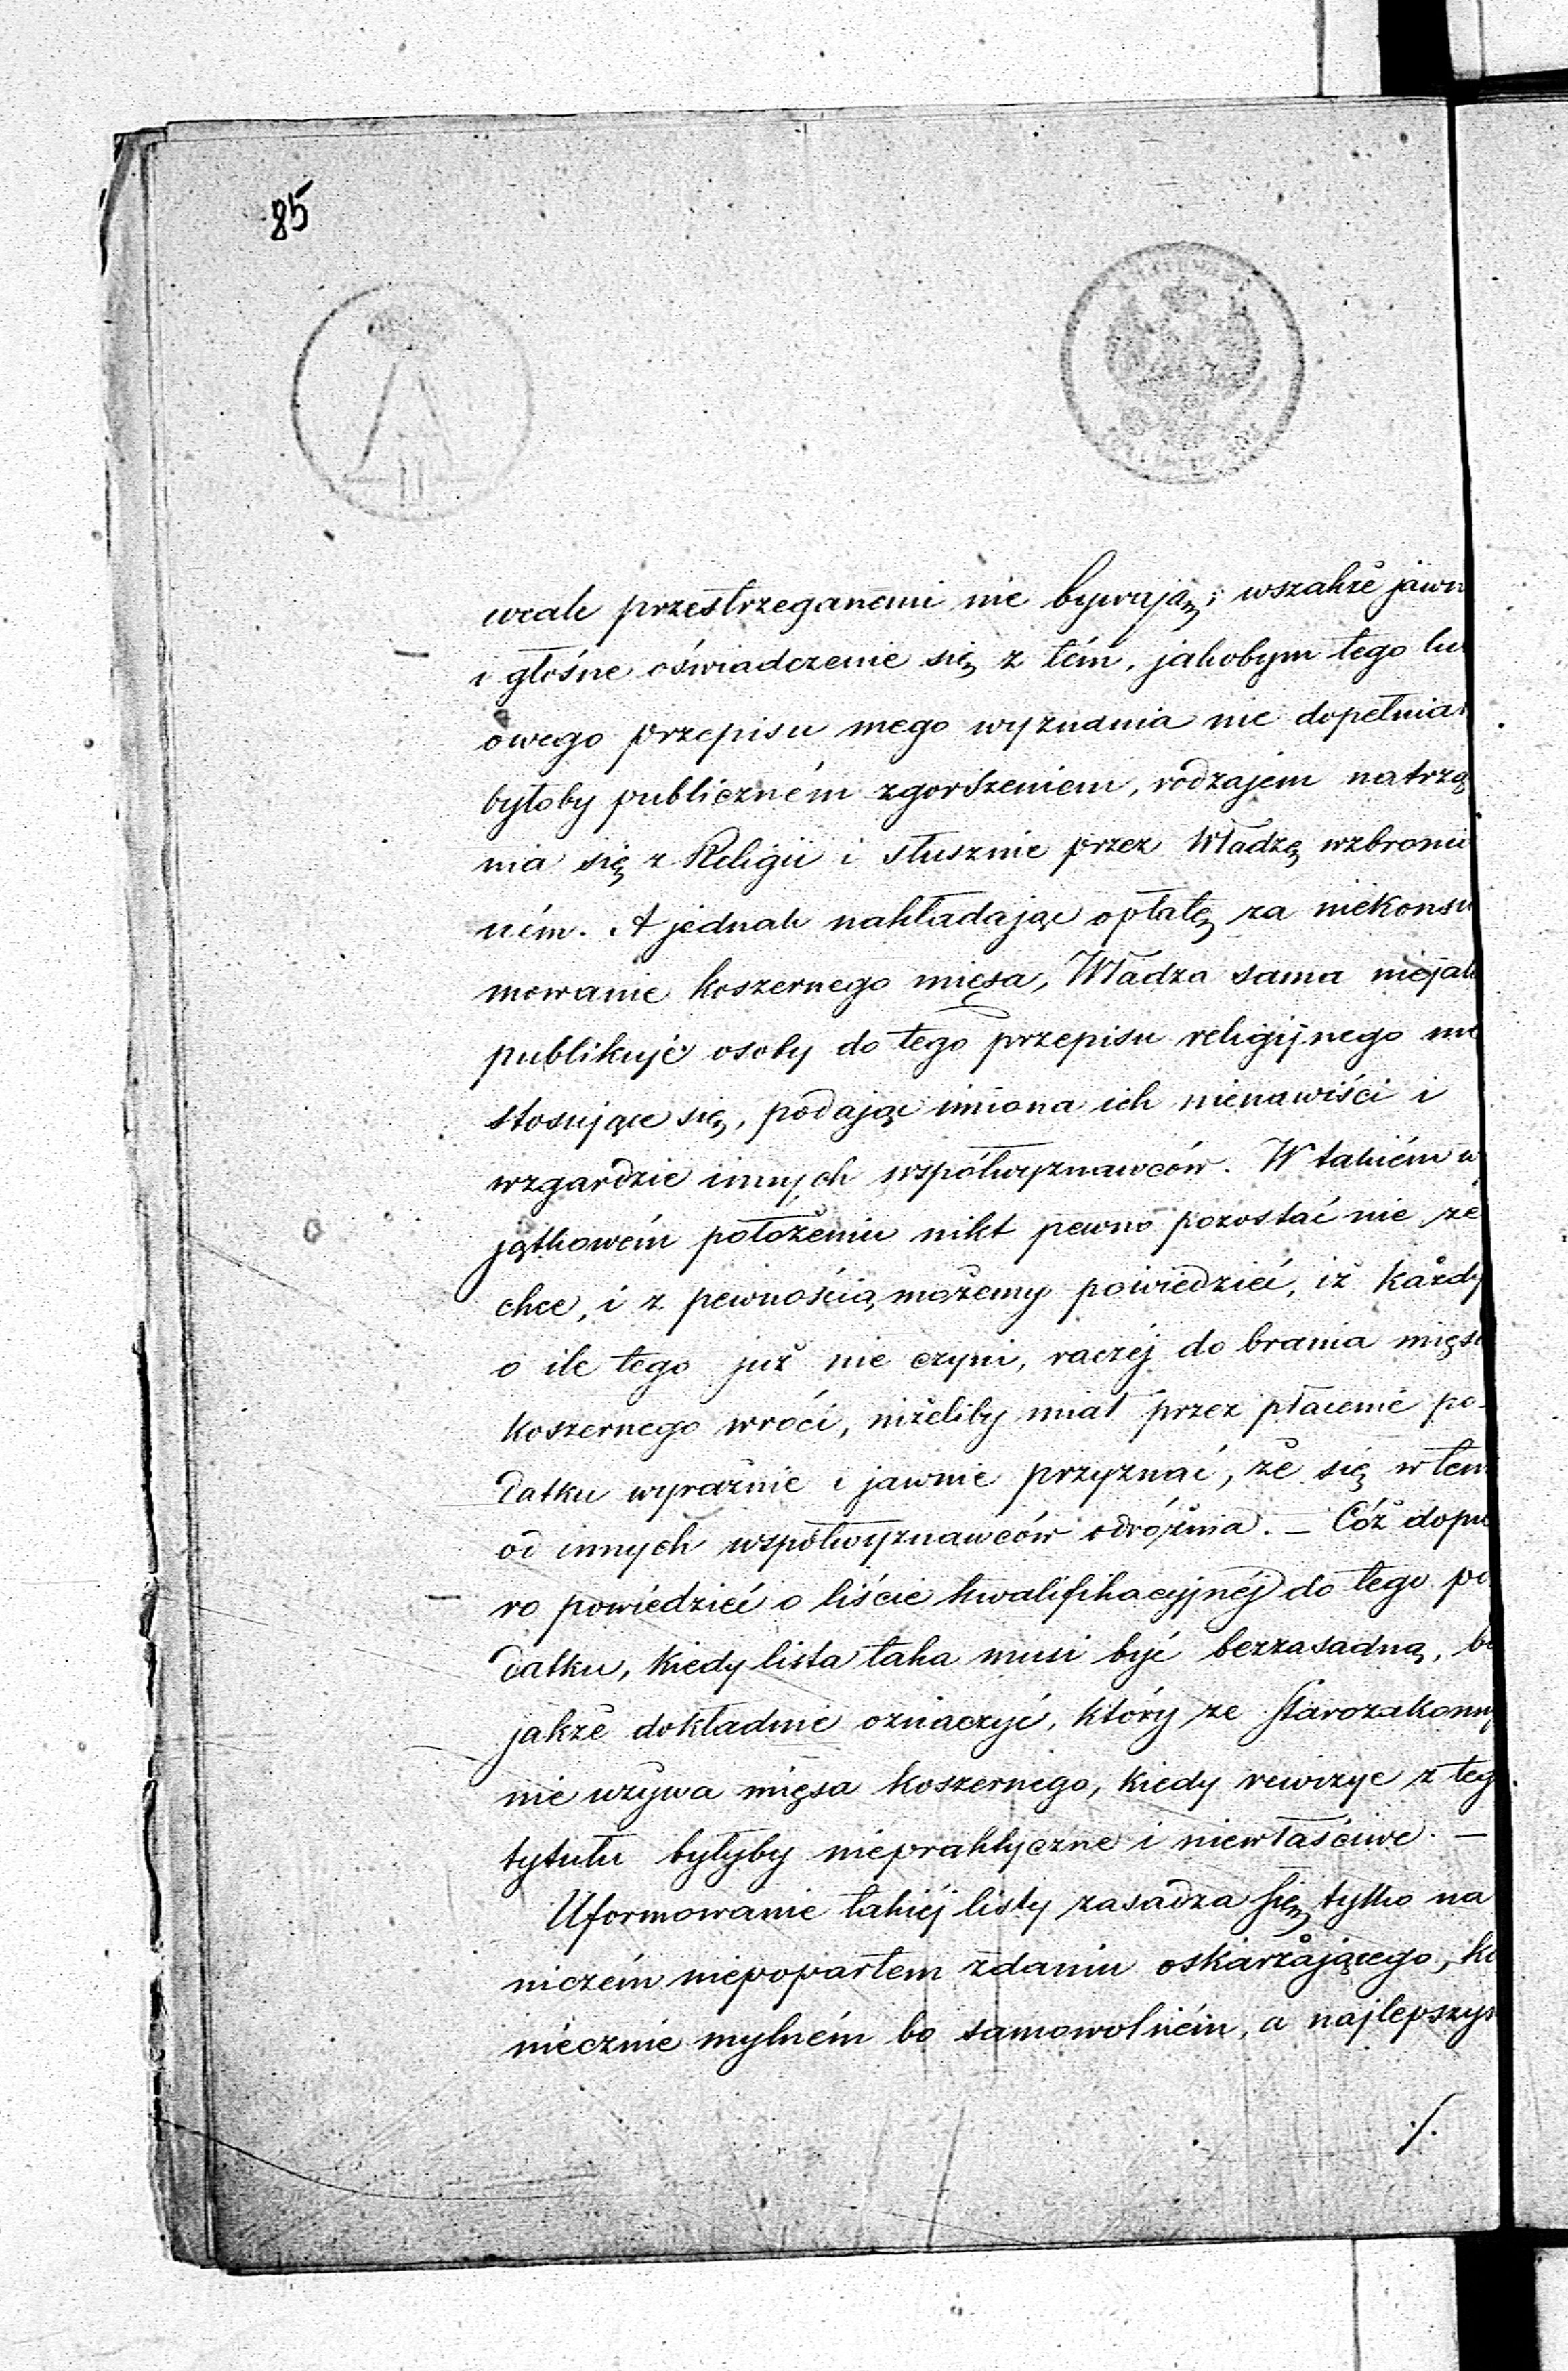 85
wcale przestrzeganemi nie bywają; wszakże jawn
i głośne oświadczenie się z tém, jakobym tego lu
owego przepisu mego wyznania nie dopełniał
byłoby publiczném zgorszeniem, rodzajem natrzą
nia się z Religii i słusznie przez Władzę wzbronio
ném. A jednak nakładając opłatę za niekonsu
mowanie koszernego mięsa, Władza sama niejak
publikuje osoby do tego przepisu religijnego nie
stosujące się, podając imiona ich nienawiści i
wzgardzie innych współwyznawców. W takiém w
jątkowém położeniu nikt pewno pozostać nie ze
chce, i z pewnością możemy powiedzieć, iż każdy
o ile tego już nie czyni, raczéj do brania mięsa
koszernego wróci, niżeliby miał przez płacenie po-
datku wyraźnie i jawnie przyznać, że się w tem
od innych współwyznawców odróżnia. – Cóż dopie
ro powiedzieć o liście kwalifikacyjnéj do tego po
datku, kiedy lista taka musi być bezzasadną, bo
jakże dokładnie oznaczyć, który ze Starozakonny
nie używa mięsa koszernego, kiedy rewizye z teg
tytułu byłyby niepraktyczne i niewłaściwe. –
Uformowanie takiéj listy zasadza się tylko na
niczém niepopartem zdaniu oskarżającego, ko
niecznie mylném bo samowolném, a najlepszym
./.